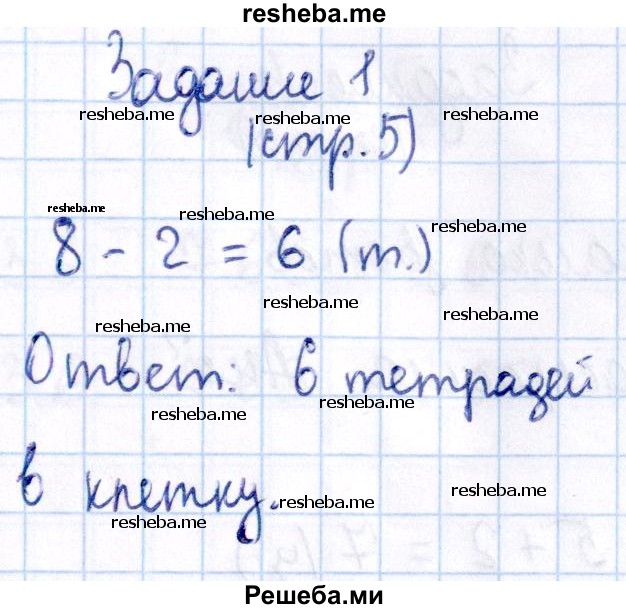 resheba.me
Задание 1
resheba.me resheba.me resheba.me
(стр. 5)
resheba.me resheba.me resheba.me
8 - 2 = 6 (т.)
resheba.me resheba.me
resheba.me
Ответ: 6 тетрадей
resheba.me resheba.me
в клетку.
resheba.me resheba.me resheba.me
5 + 2 = 7
Решеба.ми